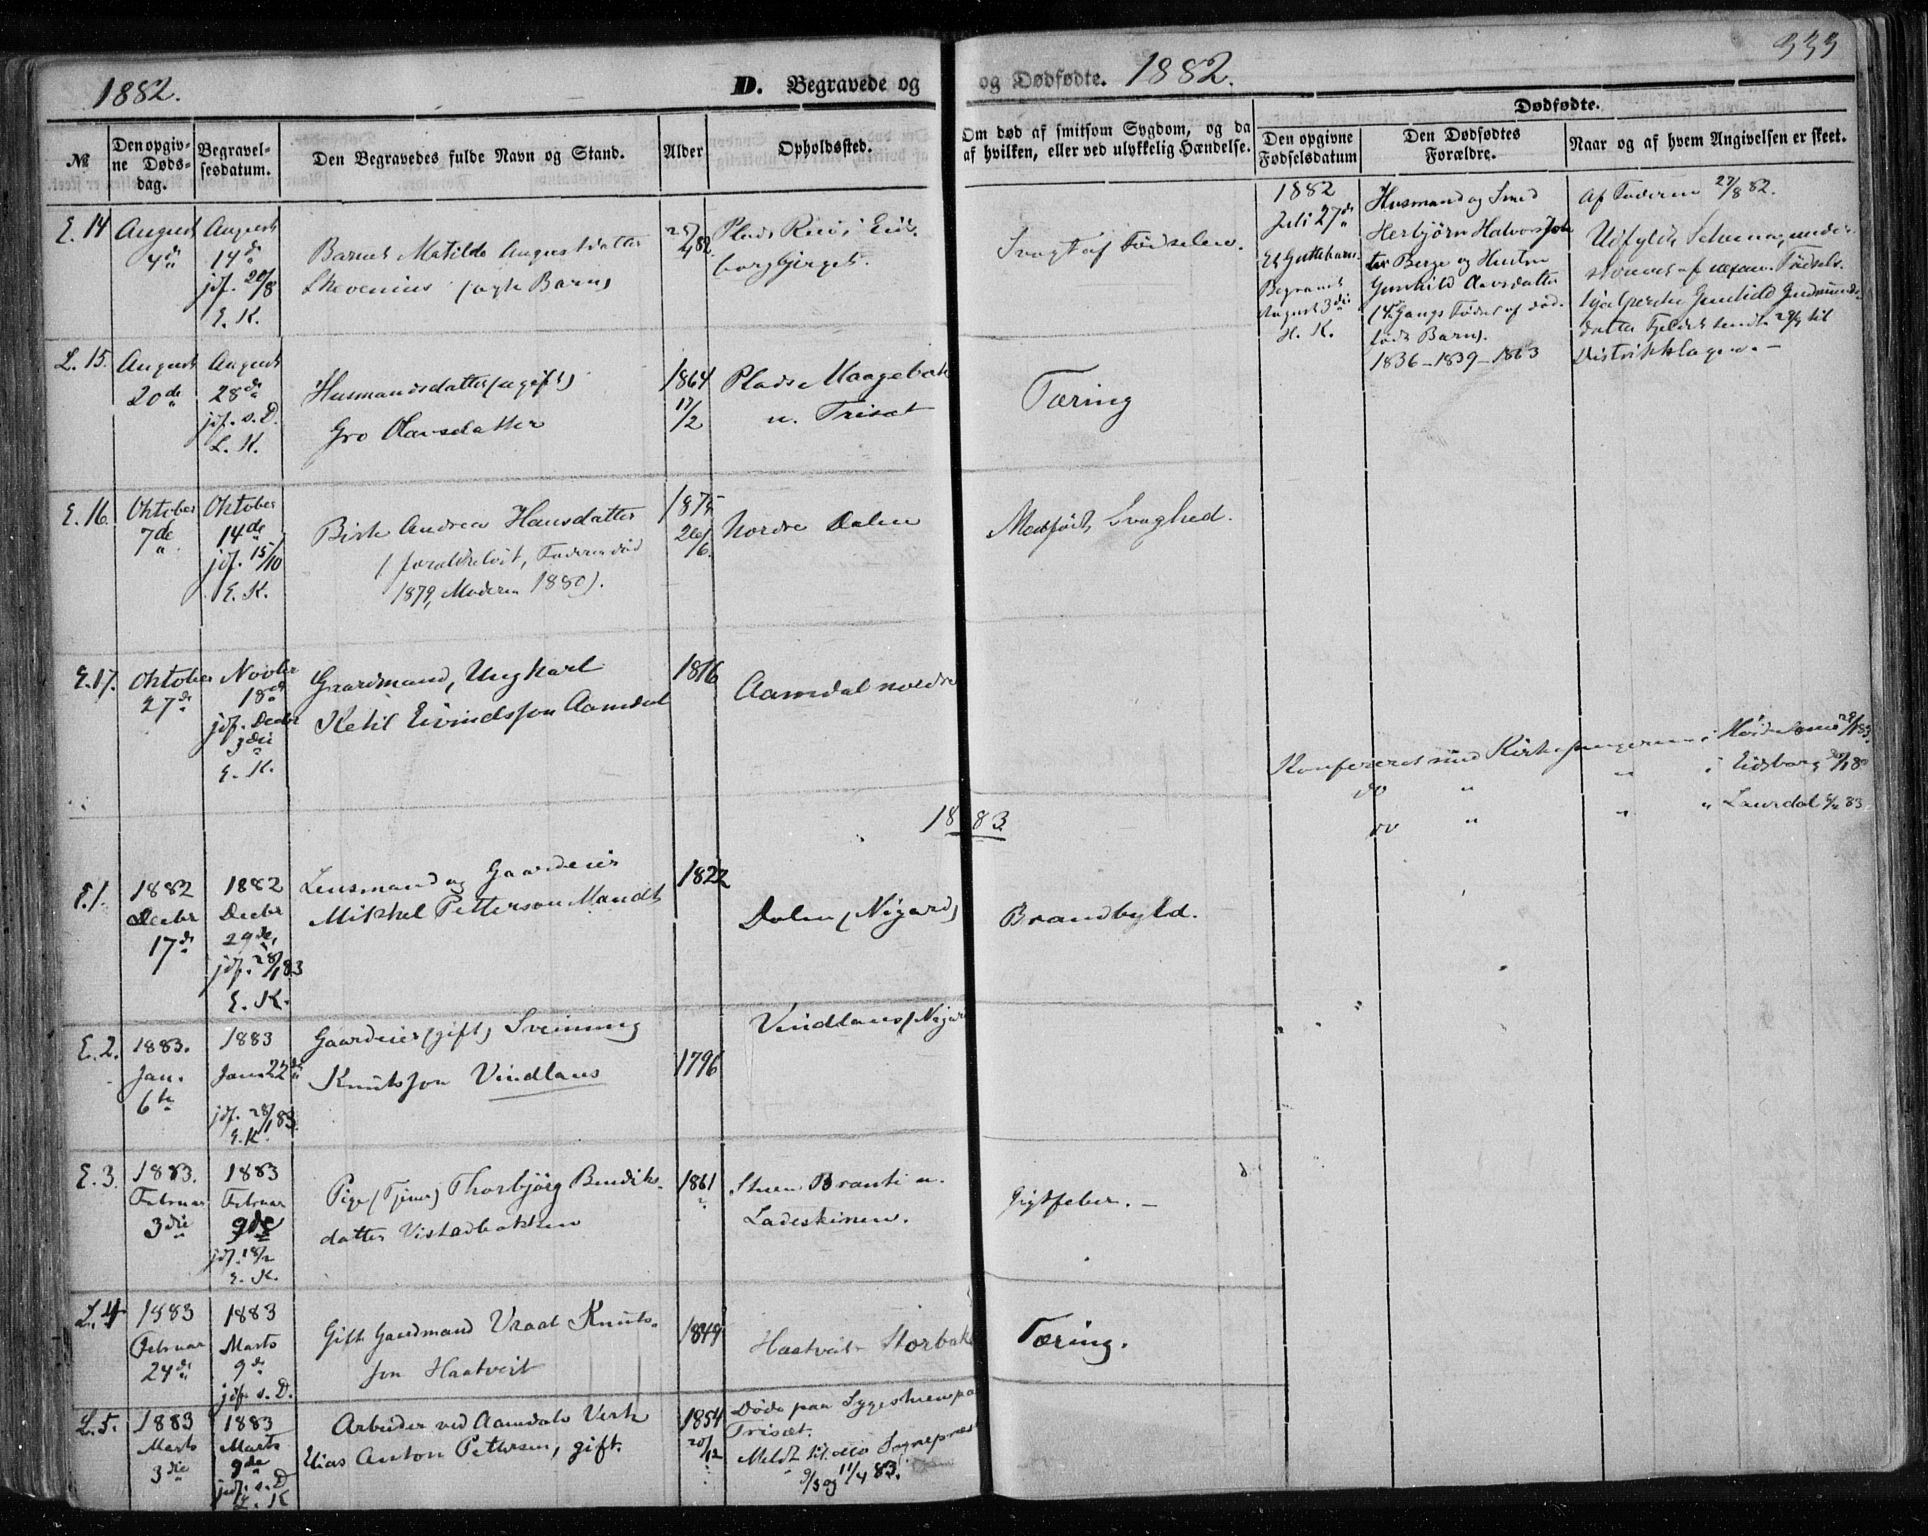 1882.
D. Begravede og
og Dødfødte. 1882.
333
№
Den opgiv-
ne Døds-
dag.
Begravel-
sesdatum.
Den Begravedes fulde Navn og Stand.
Alder
Opholdssted.
Om død af smitsom Sygdom, og da
af hvilken, eller ved ulykkelig Hændelse.
Dødfødte.
Den opgivne
Fødselsdatum
Den Dødfødtes
Forældre.
Naar og af hvem Angivelsen er skeet.
E. 14
August
4de
August
14de
jdf. 20/8
E. K.
Barnet Matilde Augustdatter
Stevenius (ægte Barn)
82
Plads
Svagt af Fødselen.
1882
Juli 27de
Et Guttebarn.
Begravet
August 3die
H. K.
Husmand og Smed
Herbjørn Halvorsson
Berge og Hustru
Gunhild Aavsdatter
(4de Gangs Fødsel af død-
født Barn).
1836 – 1839 – 1863
Af Faderen 27/8 82.
Udfyldt Schema, under-
skrevet af
Gunhild Gudmunds-
datter sendt 29/9 til
Distriktslægen. –
L. 15.
August
20de
August
28de
jdf. s. D.
L. K.
Husmandsdatter (ugift)
Gro Olavsdatter
1864
17/2
Plads Maagebak
u. Trisæt
Tæring
E. 16.
Oktober
7de
Oktober
14de
jdf. 15/10
E. K.
Birte Andrea Hansdatter
(forældreløst, Faderen død
1879, Moderen 1880).
1875
26/6.
Nordre Dalen
Medfødt Svaghed.
E. 17.
Oktober
27de
Novbr
18de
jdf. Decbr
3die
E. K.
Gaardmand, Ungkarl
Ketil Eivindsson Aamdal
1816
Aamdal nordre
Konfereret med Kirkesangeren i Høidalsmo 28/1 83.
do " " i Eidsborg
do " " " Laurdal 83
1883.
E. 1.
1882
Decbr
17de
1882
Decbr
29de,
jdf. 28/1 83
E. K.
Lensmand og Gaardeier
Mikkel Petterson Mandt
1822
Dalen (Nigard)
Brandbyld.
E. 2.
1883.
Jan.
6te
1883
Jan. 22de
jdf. 28/1 83.
E. K.
Gaardeier (gift) Sveinung
Knutsson Vindlaus
1796
Vindlaus (Nigar
E. 3.
1883.
Februar
3die
1883
Februar
9de
jdf. 18/2
E. K.
Pige (Tjener) Thorbjørg Bendiks-
datter Vistadbakken
1861
Stuen Branti u.
Ladeskinen.
Gigtfeber. –
L. 4
1883
Februar
24de
1883
Marts
9de
jdf. s. D.
Gift Gaardmand Vraal Knuts-
son Haatveit
1849
Haatveit Storbak
Tæring.
L. 5.
1883
Marts
3die
1883
Marts
9de
jdf. s. D
L. K
Arbeider ved Aamdals Verk
Elias Anton Pettersen, gift.
1854
20/12
Døde paa Sygestuen paa
Trisæt.
Meldt til Sognepræst
9/3 og 11/4 83.